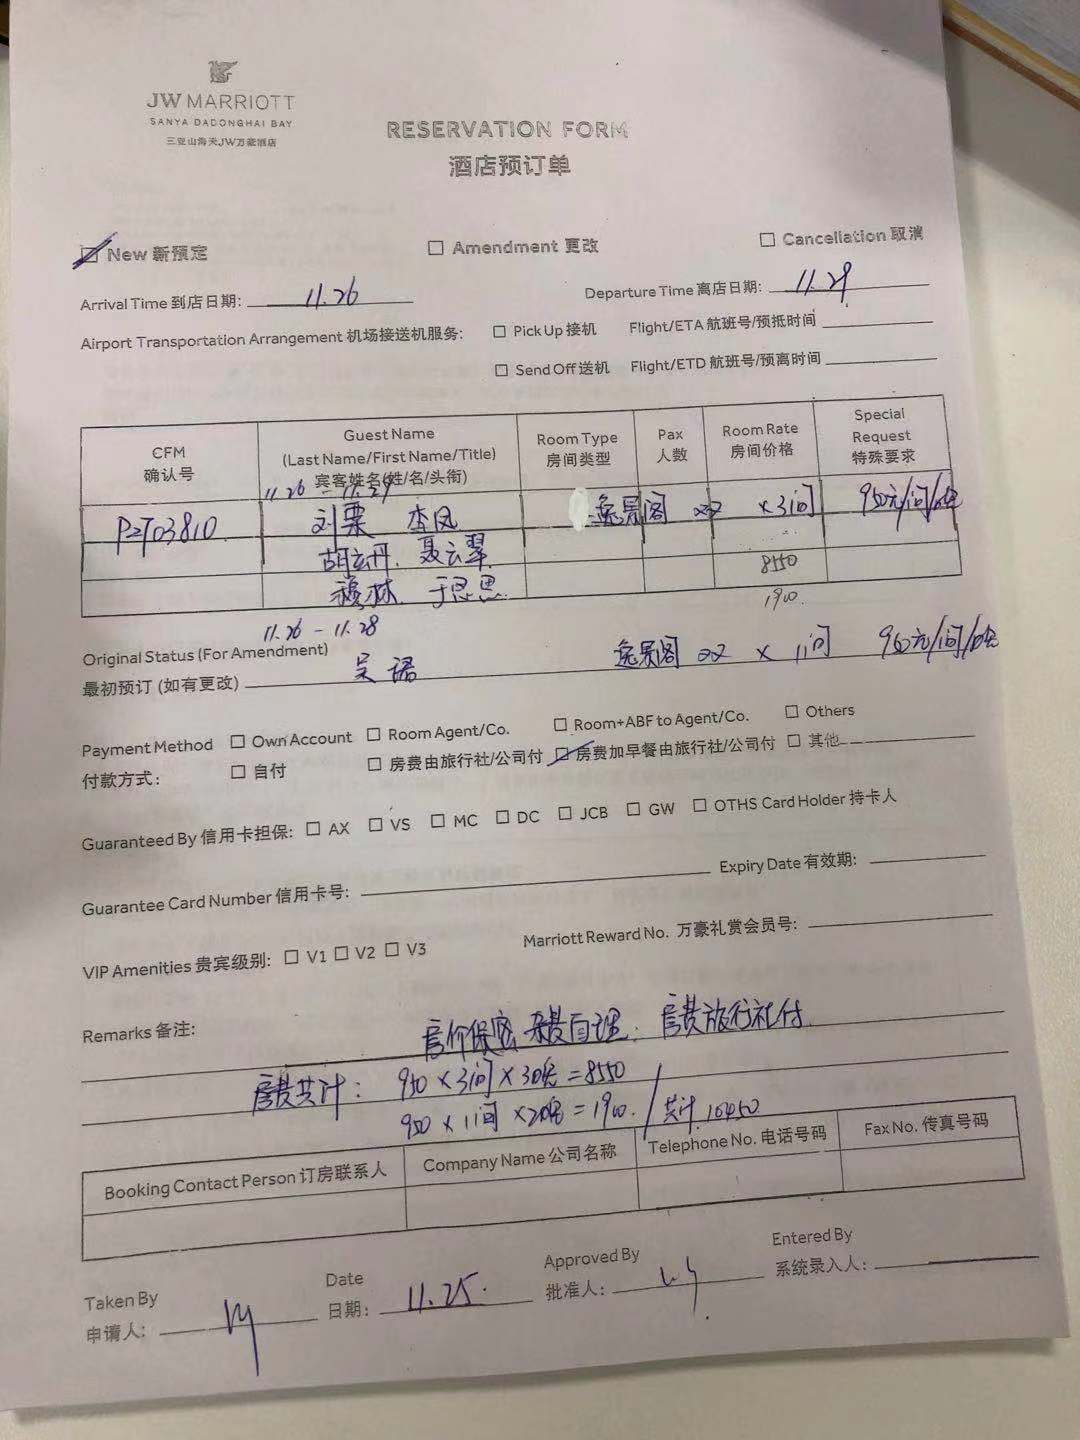 JW MARRIOTT
SANYA DADONGHAI BAY
三亚山海天JW万豪酒店
RESERVATION FORM
酒店预订单
New 新预定 Amendment 更改 Cancellation 取消
Arrival Time 到店日期: 11.26 Departure Time 离店日期: 11.29
Airport Transportation Arrangement 机场接送机服务: Pick Up 接机 Flight/ETA 航班号/预抵时间
Send Off 送机 Flight/ETD 航班号/预离时间
CFM 确认号
Guest Name
(Last Name/First Name/Title)
宾客姓名(姓/名/头衔)
Room Type 房间类型
Pax 人数
Room Rate 房间价格
Special Request 特殊要求
11.26 - 11.29
刘栗 李凤 逸景阁 双 ×3间 950元/间/晚
胡玄丹. 聂云翠 8550
穆林. 于思思 1900.
11.26 - 11.28
Original Status (For Amendment)
最初预订 (如有更改) 吴诺 逸景阁 双 × 1间 950元/间/晚
Payment Method Own Account Room Agent/Co. Room+ABF to Agent/Co. Others
付款方式: 自付 房费由旅行社/公司付 房费加早餐由旅行社/公司付 其他
Guaranteed By 信用卡担保: AX VS MC DC JCB GW OTHS Card Holder 持卡人
Guarantee Card Number 信用卡号: Expiry Date 有效期:
VIP Amenities 贵宾级别: V1 V2 V3 Marriott Reward No. 万豪礼赏会员号:
Remarks 备注: 房价保密 杂费自理. 房费旅行社付
房费共计: 950×3间×3晚=8550
950×1间×2晚=1900. / 共计 10450
Booking Contact Person 订房联系人 Company Name 公司名称 Telephone No. 电话号码 Fax No. 传真号码
Taken By 申请人:
Date 日期: 11.25.
Approved By 批准人:
Entered By 系统录入人: